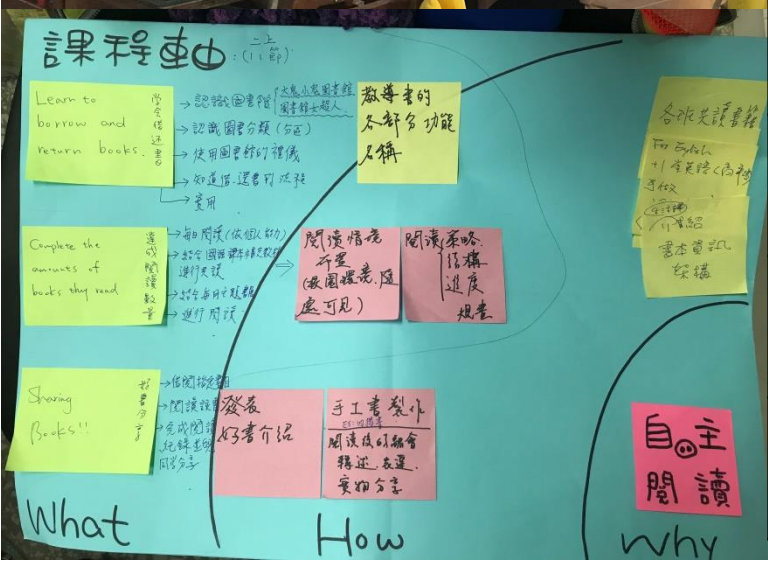 課程軸:
二上
(11節)
Learn to
borrow and
return books.
學會借還書
→認識圖書館
大鬼小鬼圖書館
圖書館女超人
→認識圖書分類(分區)
→使用圖書館的禮儀
→知道借.還書的流程
實用
教導書的
各部分功能
名稱
各班共讀書籍
For English
手做
介紹
書本資訊
架構
Complete the
amounts of
books they read
達成閱讀數量
→每日閱讀(依個人能力)
進行共讀
進行閱讀
閱讀情境
布置
可見)
閱讀策略
結構
進度
規畫
Sharing
Books!!
好書分享
→完成閱讀
同學分享
發表
好書介紹
手工書製作
閱讀後的統整
轉述.表達.
實物分享
自主
閱讀
What
How
Why